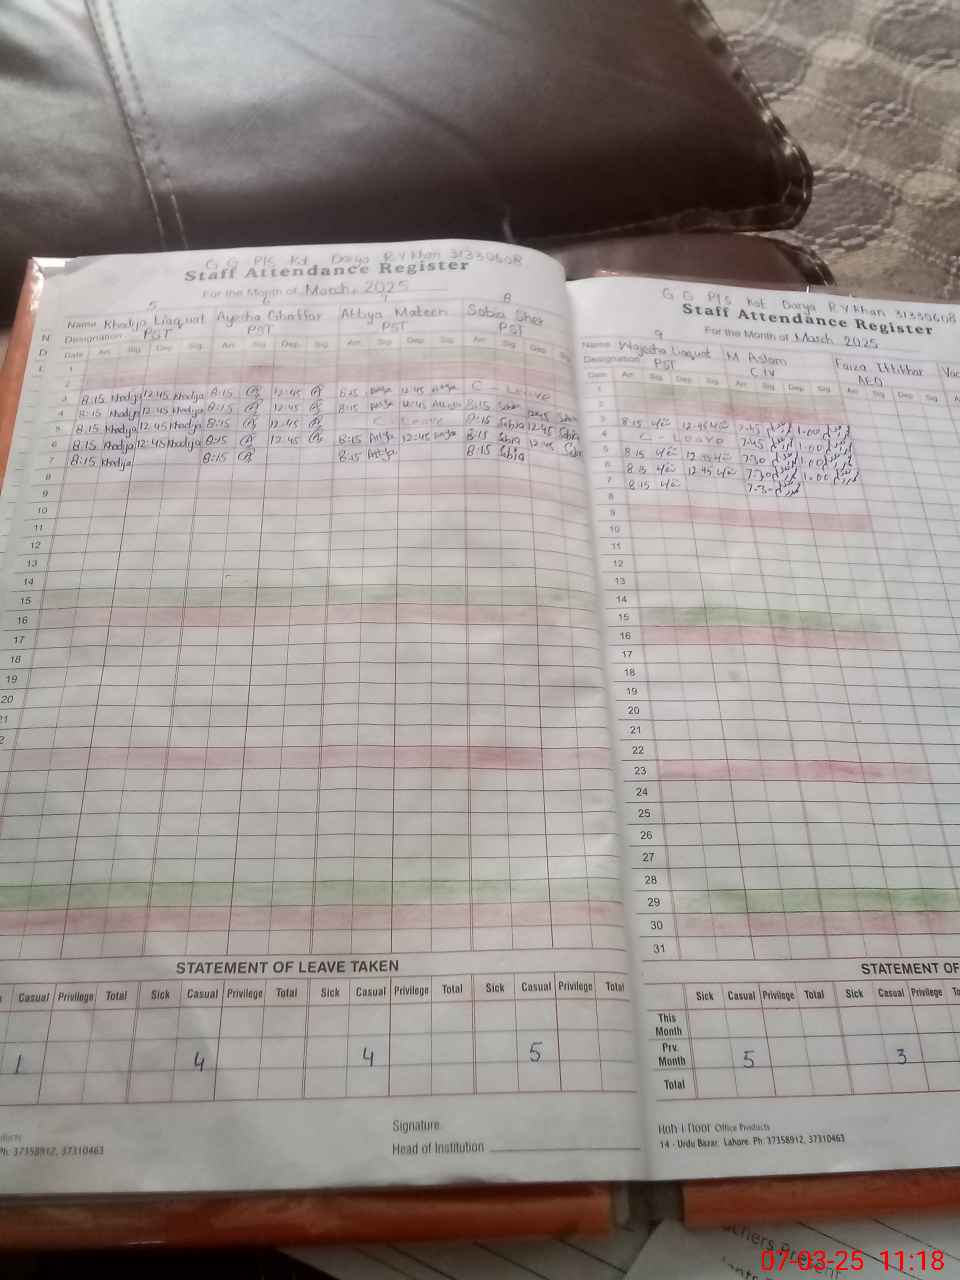 G G P/S Kot Darya R.Y Khan 31330608
Staff Attendance Register
For the Month of March, 2025
5 6 7 8
Name Khadija Liaquat Ayesha Ghaffar Attiya Mateen Sabia Sher
Designation PST PST PST PST
Date Arr. Sig. Dep. Sig. Arr. Sig. Dep. Sig. Arr. Sig. Dep. Sig. Arr. Sig. Dep. Sig.
1
2
3 8:15 Khadija 12:45 Khadija 8:15 12:45 8:15 12:45 C - Leave
4 8:15 Khadija 12:45 Khadija 8:15 12:45 8:15 12:45 8:15 Sabia 12:45 Sabia
5 8:15 Khadija 12:45 Khadija 8:15 12:45 C Leave 8:15 Sabia 12:45 Sabia
6 8:15 Khadija 12:45 Khadija 8:15 12:45 8:15 Attiya 12:45 8:15 Sabia 12:45
7 8:15 Khadija 8:15 8:15 Attiya 8:15 Sabia
8
9
10
11
12
13
14
15
16
17
18
19
20
21
2
STATEMENT OF LEAVE TAKEN
Casual Privilege Total Sick Casual Privilege Total Sick Casual Privilege Total Sick Casual Privilege Total
1 4 4 5
Signature
Head of Institution
Ph: 37358912, 37310463
G G P/S Kot Darya R.Y Khan 31330608
Staff Attendance Register
For the Month of March 2025
9
Name Wajeeha Liaquat M Aslam Faiza Iftikhar
Designation PST C IV AEO
Date Arr. Sig. Dep. Sig. Arr. Sig. Dep. Sig. Arr. Sig. Dep. Sig.
1
2
3 8:15 12:45 7:45 1:00
4 C - Leave 7:45 1:00
5 8:15 12:45 7:30 1:00
6 8:15 12:45 7:30 1:00
7 8:15 7:30
8
9
10
11
12
13
14
15
16
17
18
19
20
21
22
23
24
25
26
27
28
29
30
31
STATEMENT OF
Sick Casual Privilege Total Sick Casual Privilege
This Month
Prv. Month 5 3
Total
Koh-i-Noor Office Products
14 - Urdu Bazar, Lahore. Ph: 37358912, 37310463
Present
07-03-25 11:18